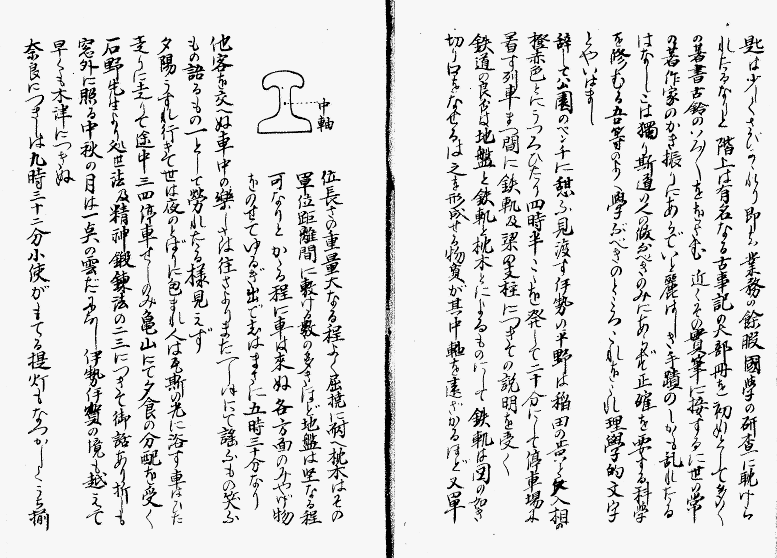 匙は少くさびかれり即ち業務の餘暇國學の研査に耽けら
れたるなりと 階上は有名なる古事記の大部冊を初めとして多く
の著書古鈴のいろ〳〵をおさむ 近くその眞筆に接するに世の常
の著作家のかき振りにあらでいと麗はしき手蹟のしかも乱れたる
はなしこは獨り斯道の人の倣ふべきのみにあらず正確を要する科學
を修むる吾等のよく學ぶべきのところこれぞこれ理學的文字
とやいはまし
辞して公園のベンチに憩ふ見渡す伊勢の平野は稲田の
橙赤色とにうつろひたり四時半こゝを発して二十分にして停車場に
着す列車まつ間に鉄軌及梁の支柱につきての説明を受く
鉄道の良否は地盤と鉄軌と枕木とによるものにして鉄軌は図の如き
切り口をなせるは之を形成せる物質が其中軸を遠ざかるほど又單
位長さの重量大なる程よく屈撓に耐へ枕木はその
單位距離間に敷ける数の多きほど地盤は堅なる程
可なりとかゝる程に車は来ぬ各方面のみやげ物
をのせてゆるぎ出で志はまさに五時三十分なり
中軸
他客を交へぬ車中の樂しさは往さよりもまた一しほにて謡ふもの笑ふ
もの語るもの一として勞れたる様見えず
夕陽うすれ行きて世は夜のとばりに包まれ人は瓦斯の光に浴す車はひた
走りに走りて途中三四停車せしのみ亀山にて夕食の分配を受く
石野先生より処世法及精神鍛錬法の二三につきて御話あり折しも
窓外に照る中秋の月は一点の雲だになし 伊勢伊賀の境も越えて
早くも木津につきぬ
奈良につきしは九時三十二分小使がもてる提灯もなつかしくうち揃